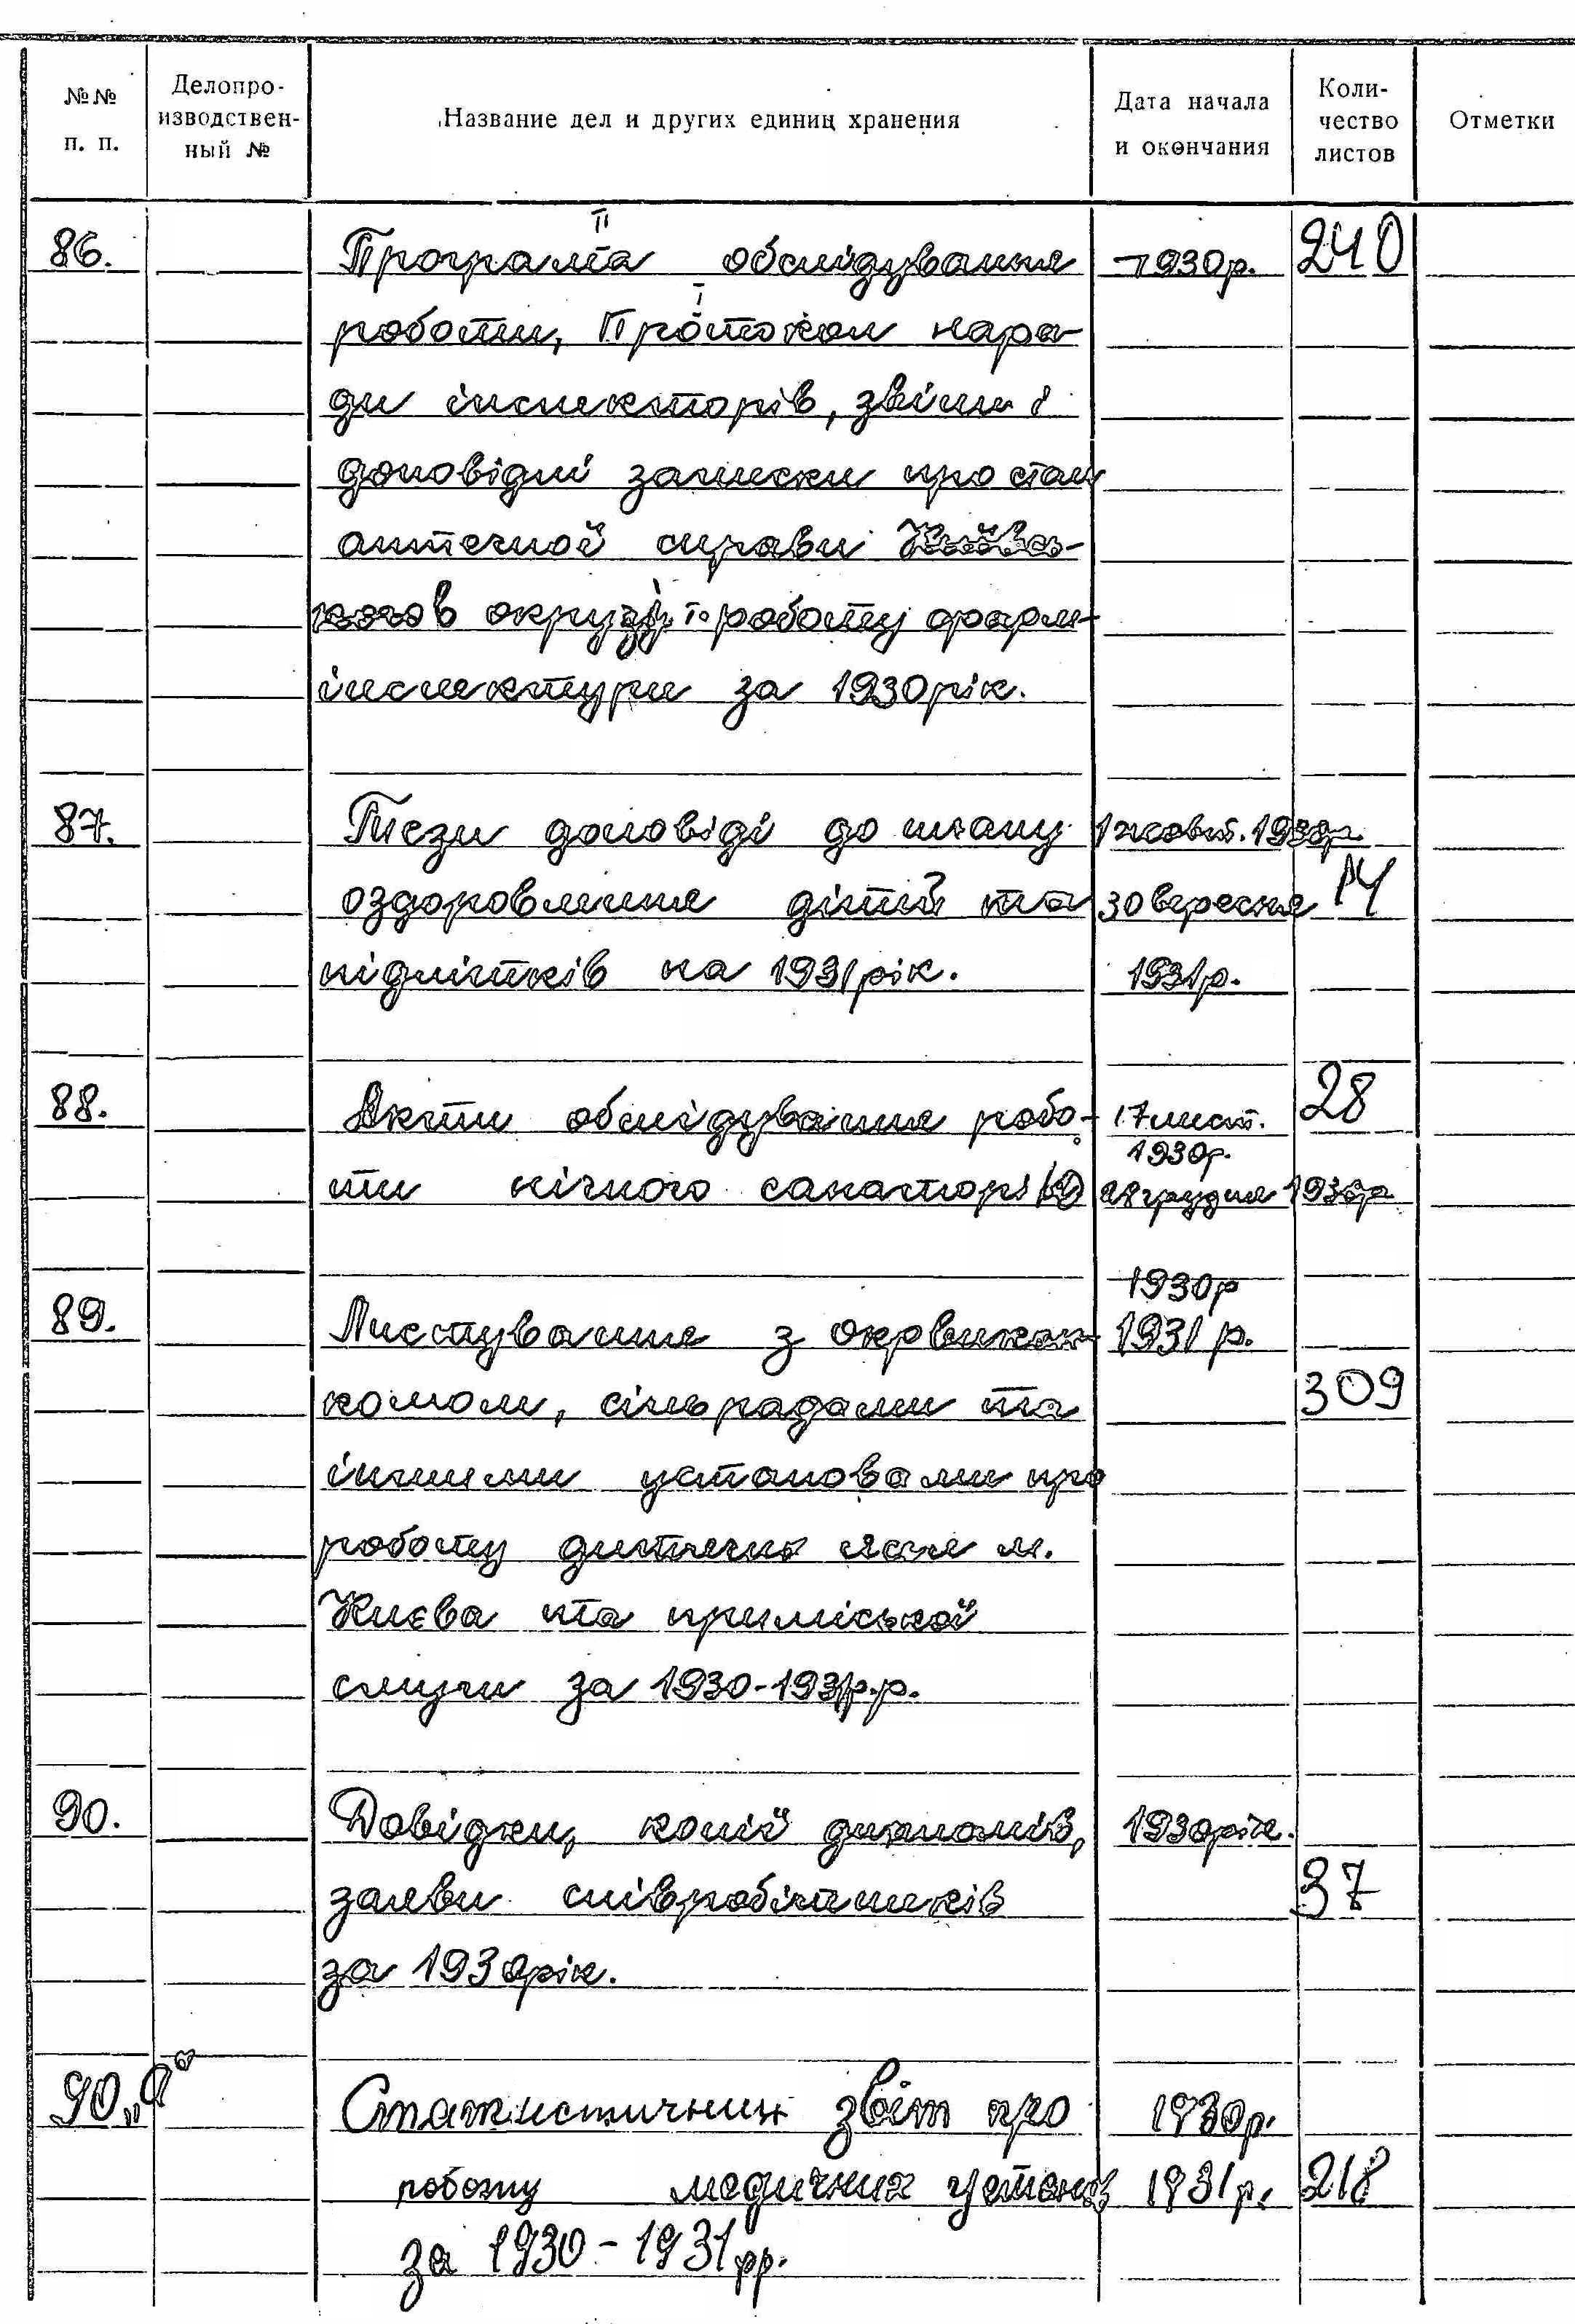 №№ п. п. Делопроизводственный № Название дел и других единиц хранения Дата начала и окончания Количество листов Отметки
II
86. Програма обслідування 1930р. 240
I
роботи, Протокол нара-
ди інспекторів, звіти і
доповідні записки про стан
аптечної справи Київсь-
кого в окрузі і роботу фарм-
інспектури за 1930рік.
87. Тези доповіді до плану 1 жовт. 1930р.
оздоровлення дітей та 30 вересня 14
підлітків на 1931рік. 1931р.
88. Акти обслідування робо- 17 лист. 28
1930р.
ти нічного санаторію 28 грудня 1930р
1930р
89. Листування з окрвикон- 1931 р.
комом, сільрадами та 309
іншими установами про
роботу дитячих ясел м.
Києва та приміської
смуги за 1930-1931р.р.
90. Довідки, копії дипломів, 1930рік.
заяви співробітників 37
за 1930рік.
90„а" Статистичний звіт про 1930р.
роботу медичних установ 1931р. 218
за 1930-1931рр.